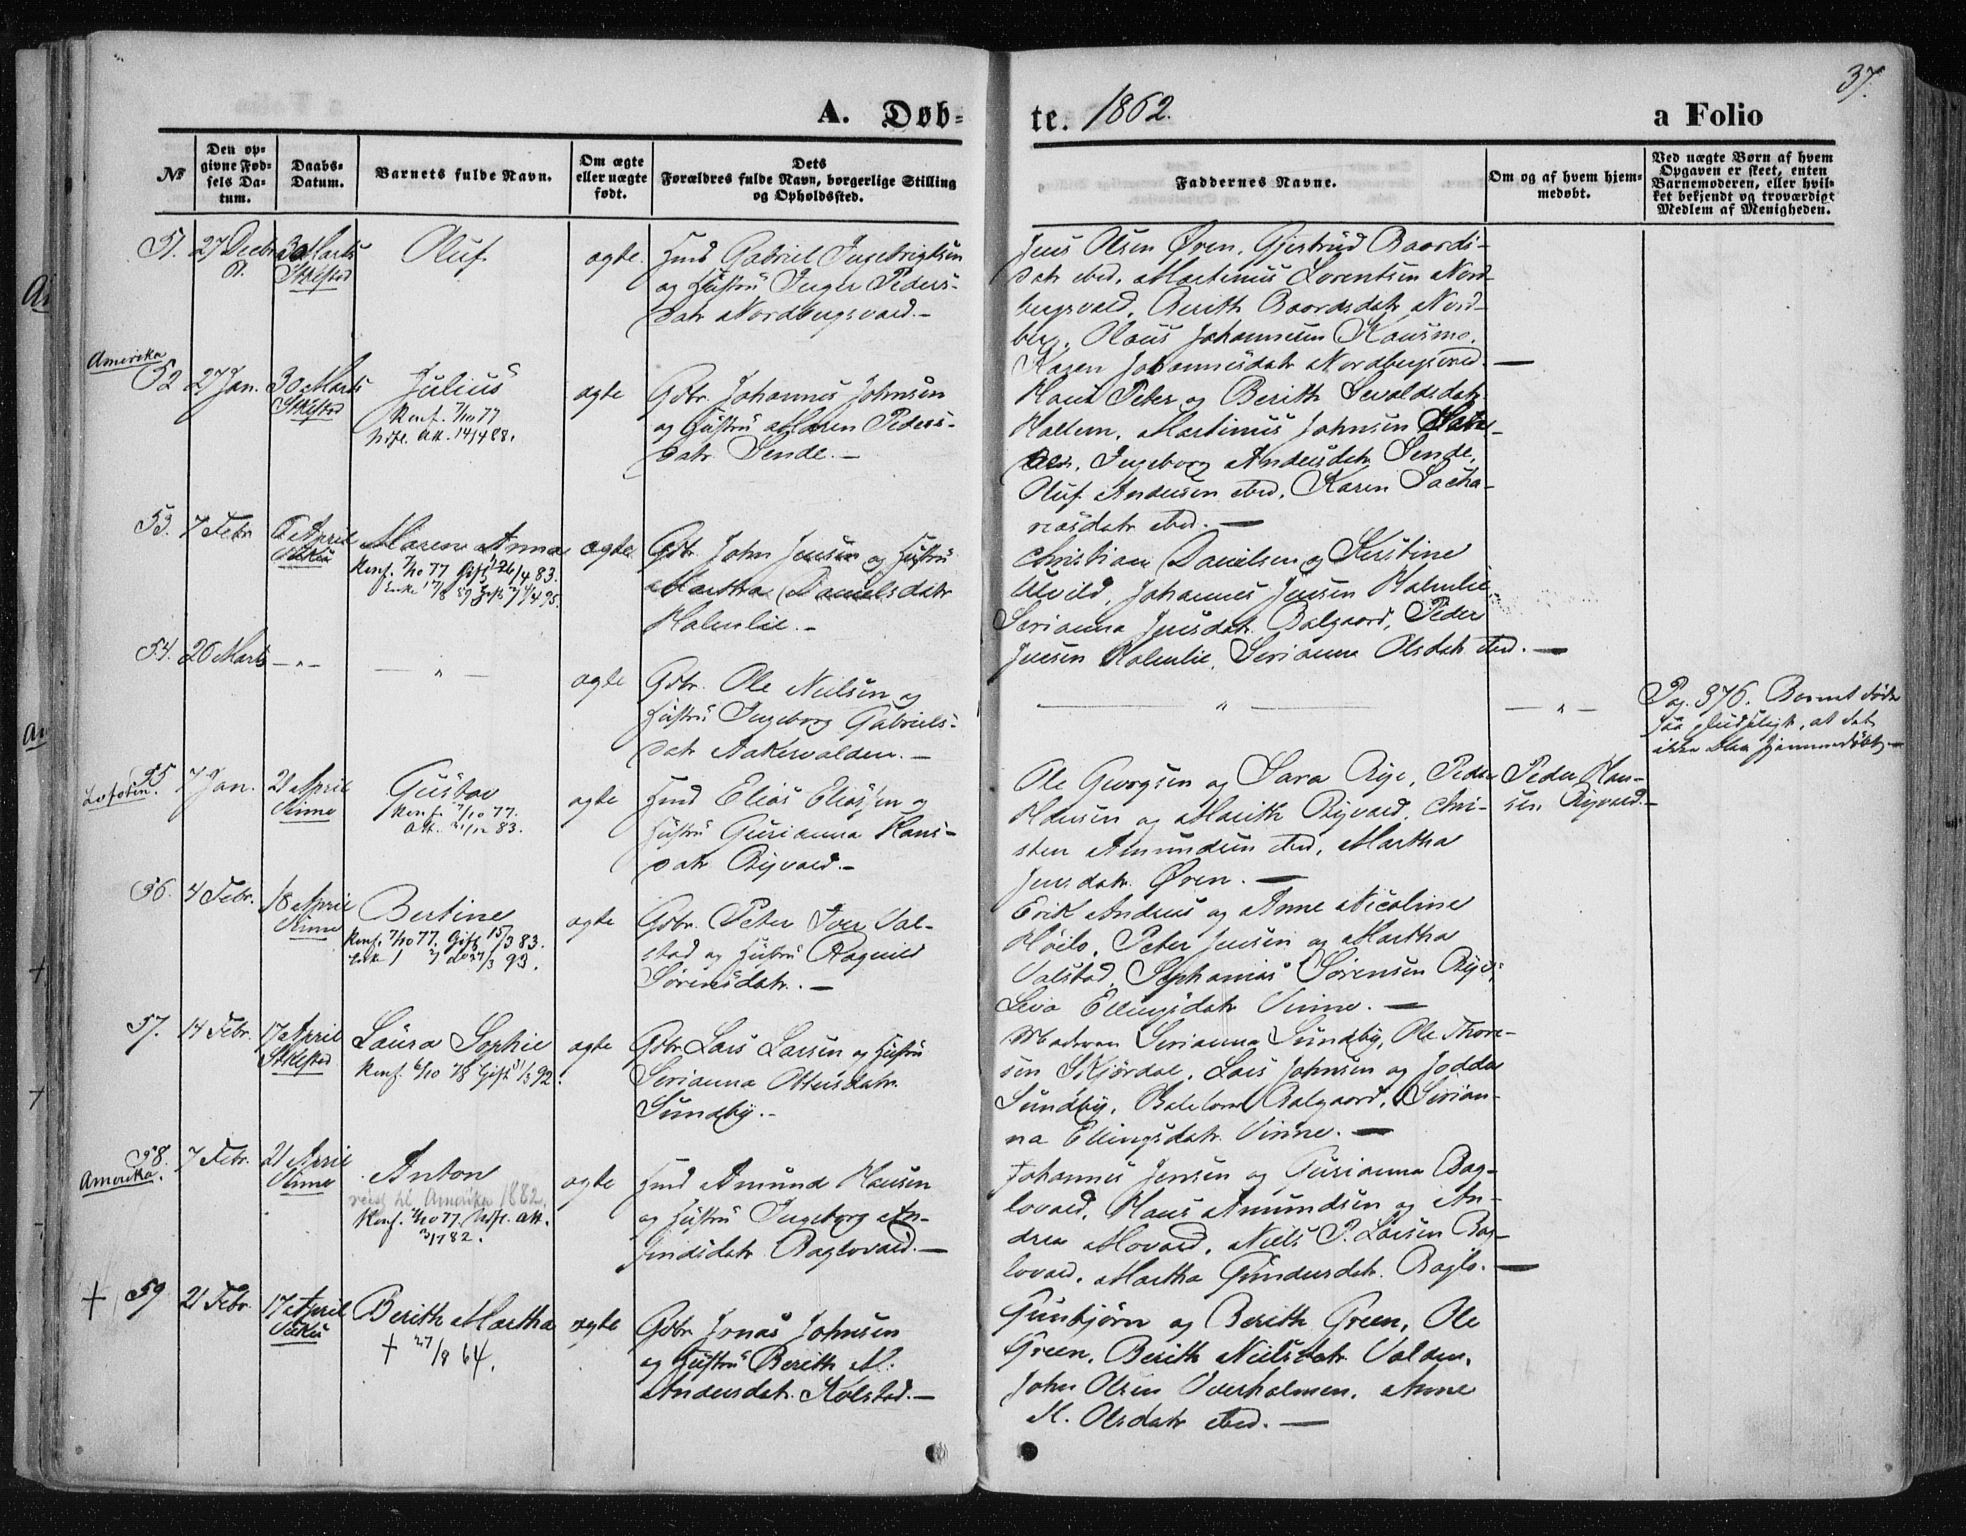 37.
A. Døb-
te. 1862.
a Folio
No
Den op-
givne Fød-
sels Da-
tum.
Daabs-
Datum.
Barnets fulde Navn.
Om ægte
eller uægte
født.
Dets
Forældres fulde Navn, borgerlige Stilling
og Opholdssted.
Faddernes Navne.
Om og af hvem hjem-
medøbt.
Ved uægte Børn af hvem
Opgaven er skeet, enten
Barnemoderen, eller hvil-
ket bekjendt og troværdigt
Medlem af Menigheden.
51. 27 Decbr
30 Marts
Stklstad
Oluf
ægte.
Hmd Gabriel Ingebrigtsen
og Hustru Inger Peders-
datr Nordbergsvald. –
Jens Olsen Øren, Gjertrud Baards-
datr ibid, Martinus Lorentsen Nord-
bergsvald, Berith Baardsdatr Nord-
berg, Olaus Johannesen Kausmo,
Karen Johannesdatr Nordbergsvald. —
Amerika
52 27 Jan.
30 Marts
Stklstad
Julius
Konf. 7/10 77
Udfl. Att. 14/4 88.
ægte
Gbr. Johannes Johnsen
og Hustru Maren Peders-
datr Sende. –
Hans Peter og Berith Sevaldsdatr
Hallem, Martinus Johnsen
Ingeborg Andersdatr Sende,
Oluf Andersen ibid, Karen Sacha-
riasdatr ibid. —
53. 7 Febr.
6 April
Vuku
Maren Anna
Konf. 7/10 77 Gift 26/4 83.
Enke 17/8 89
ægte
Gbr. John Jensen og Hustru
Martha Danielsdatr
Holmlie. –
Christian Danielsen og Kerstine
Ulvild, Johannes Jensen Holmlie,
Serianna Jensdatr Balgaard, Peder
Jensen Holmlie, Serianna Olsdatr ibid. —
54. 20 Marts – „ –
– „ –
ægte
Gbr. Ole Nielsen og
Hustru Ingeborg Gabriels-
datr Aakervolden. –
— „ —
— „ —
Pag. 376. Barnet fødte
saa at det
ikke blev hjemmedøbt. —
Lofoten.
55 7 Jan.
21 April
Vinne
Gustav
Konf. 7/10 77.
Att. 21/12 83.
ægte
Hmd Elias Eliassen og
Hustru Gurianna Hans-
datr Ryvald. –
Ole Georgsen og Sara Rye, Peder
Hansen og Marith Ryvald, Chri-
sten Amundsen ibid, Martha
Jensdatr. Øren. —
Peder Han-
sen Ryvald. –
56. 4 Febr.
18 April
Vinne
Bertine
Konf. 7/10 77. Gift 15/3 83.
Enke
ægte
Gbr. Peter Iver Val-
stad og Hustru Ragnild
Sørensdatr. –
Erik Andreas og Anne Nicoline
Høilo, Peter Jensen og Martha
Valstad, Stephanias Sørensen Rye,
Leva Ellingsdatr Vinne. —
57. 14 Febr.
17 April
Stklstad
Laura Sophie
Konf. 6/10 78 Gift 31/3 92.
ægte
Gbr Lars Larsen og Hustru
Serianna Ottersdatr
Sundby. –
Madam Serianna Sundby, Ole Thore-
sen Skjørdal, Lars Johnsen og Joddda
Sundby, Balgaard, Serian-
na Ellingsdatr Vinne. —
58. 7 Febr.
Amerika.
21 April
Vinne
Anton
reist til Amerika 1882
Konf. 7/10 77. Udfl. Att.
ægte
Hmd Amund Hansen
og Hustru Ingeborg An-
findsdatr Baglovald. —
Johannes Jensen og Gurianna Bag-
lovald, Hans Amundsen og An-
drea Movald, Niels P. Larsen Bag-
lovald, Martha Gundersdatr. Baglo. —
+ 59 21 Febr.
17 April
Vuku
Berith Martha
+ 27/8 64.
ægte
Gbr. Jonas Johnsen
og Hustru Berith M.
Andersdatr. Kolstad. –
Gunbjørn og Berith Green, Ole
Green, Berith Nielsdatr Volden,
John Olsen Overholmen, Anne
M. Olsdatr ibid. —